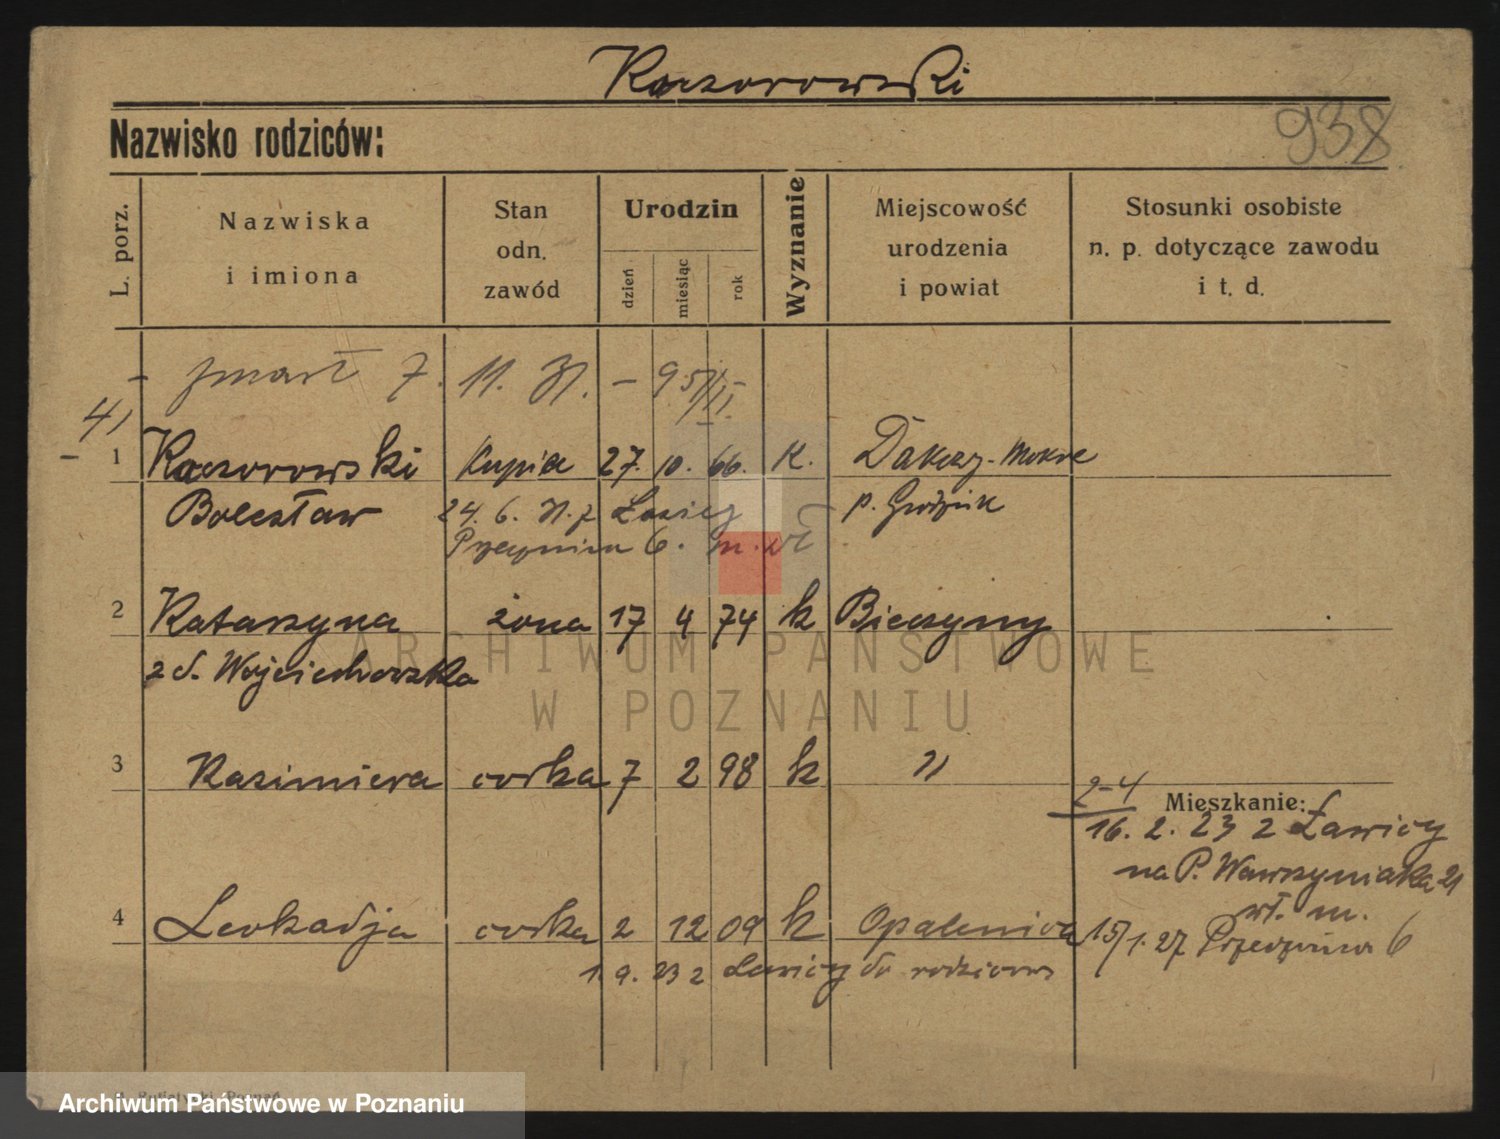 Kaczorowski
Nazwisko rodziców:
938
L. porz.
Nazwiska
i imiona
Stan
odn.
zawód
Urodzin
dzień
miesiąc
rok
Wyznanie
Miejscowość
urodzenia
i powiat
Stosunki osobiste
n. p. dotyczące zawodu
i t. d.
zmarł 7. 11. 31. –
41
1 Kaczorowski kupiec 27. 10. 66. K. Dakowy-Mokre
Bolesław 24. 6. 31. z Ławicy p. Grodzisk
Przecznica 6. m. wł.
2 Katarzyna żona 17 4 74 k Bieczyny
z d. Wojciechowska
ARCHIWUM PAŃSTWOWE
W POZNANIU
3 Kazimiera córka 7 2 98 k "
2-4
Mieszkanie:
16. 2. 23 z Ławicy
na P. Wawrzyniaka 21
wł. m.
4 Leokadja córka 2 12 09 k Opalenica 15/1. 27 Przecznica 6
1. 9. 23 z Ławicy do rodziców
Archiwum Państwowe w Poznaniu